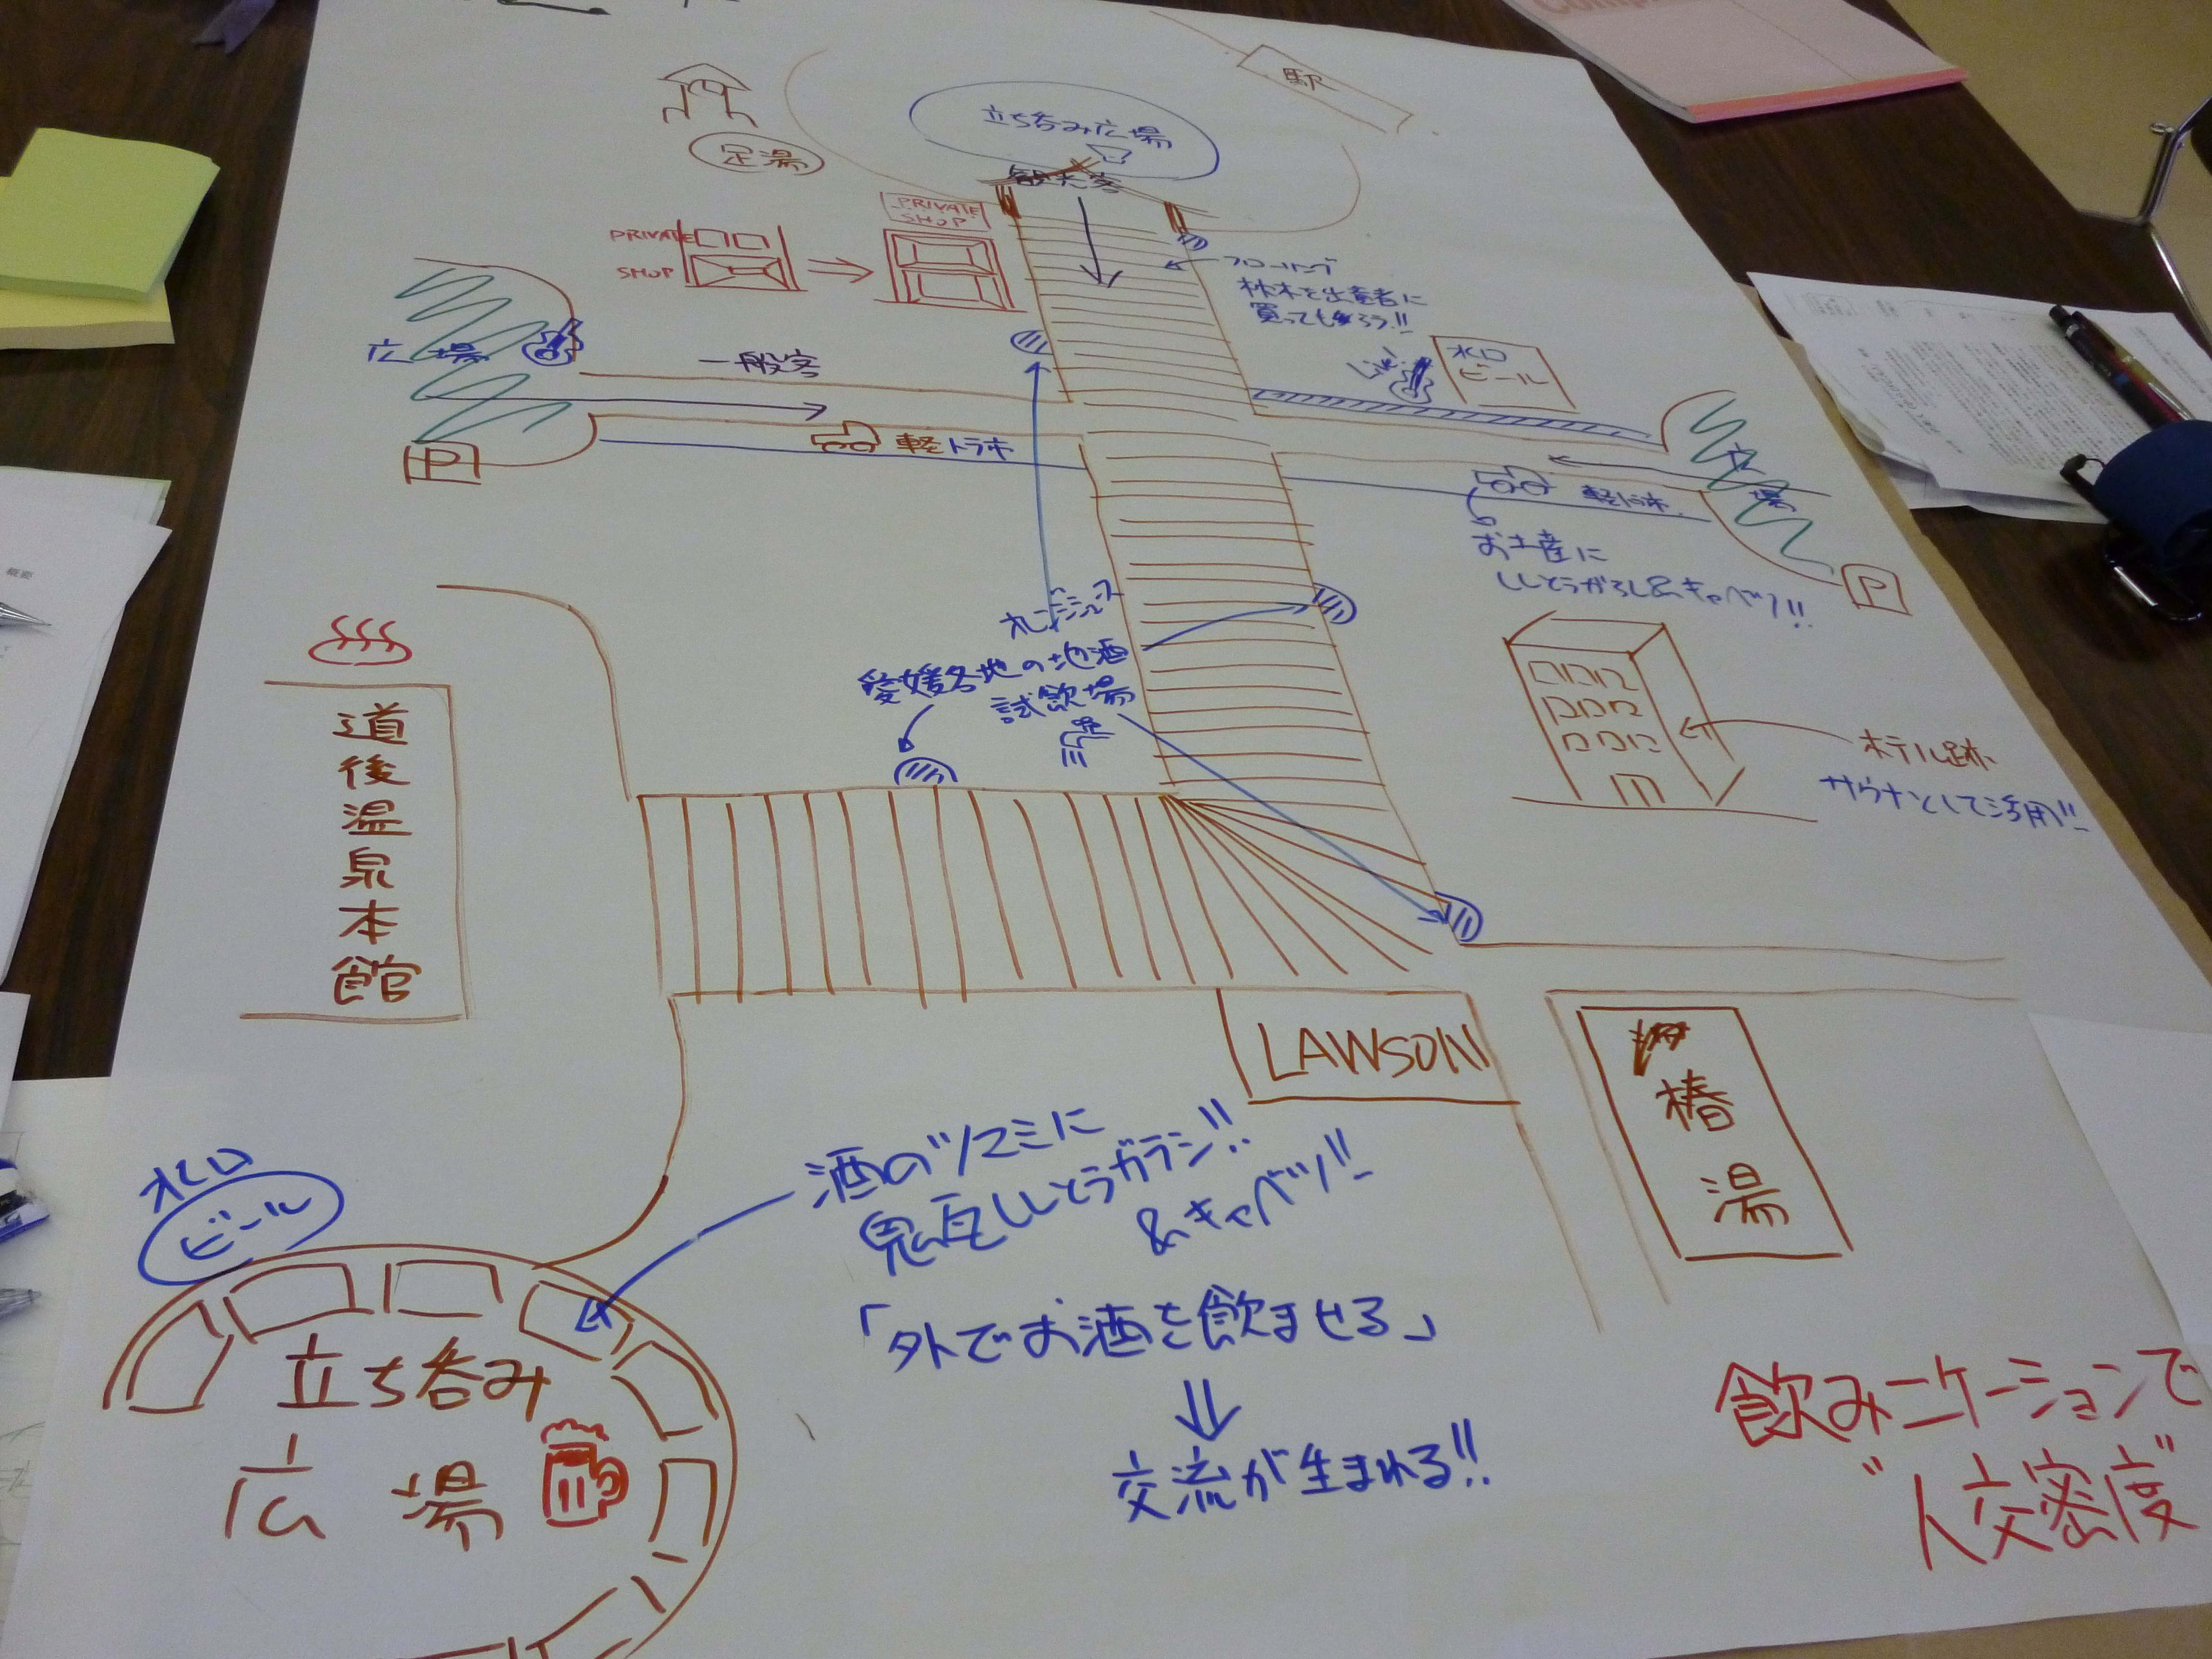 駅
立ち呑み広場
観光客
足湯
PRIVATE
SHOP
PRIVATE
SHOP
フローリング
材木を出資者に
買ってもらう!!
Live!
水口
ビール
広場
一般客
軽トラ市
P
広
場
軽トラ市
お土産に
ししとうがらし&キャベツ!!
P
オレンジジュース
愛媛各地の地酒
試飲場
ホテル跡
サウナとして活用!!
道後温泉本館
LAWSON
椿湯
水口
ビール
酒のツマミに
鬼瓦ししとうガラシ!!
&キャベツ!!
「外でお酒を飲ませる」
交流が生まれる!!
立ち呑み
広場
飲みニケーションで
"人交密度"